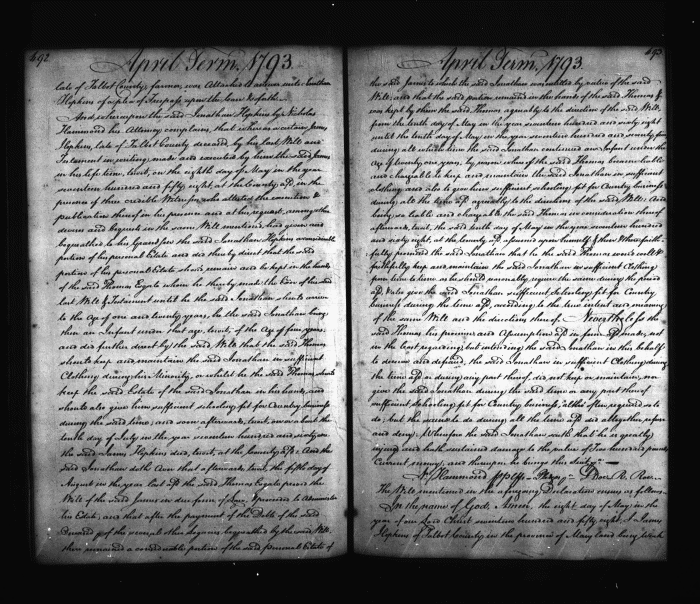 692
April Term, 1793
late of Talbot County, farmer, was Attached to answer unto Jonathan
Hopkins of a plea of Trespass upon the Case &c
And whereupon the said Jonathan Hopkins by Nicholas
Hammond his Attorney complains, that whereas a certain James
Hopkins, late of Talbot County deceased, by his last Will and
Testament in writing, made and executed by him the said James
in his life time, to wit, on the eighth day of May in the year
seventeen hundred and fifty eight, at the County afd in the
presence of three credible Witnesses, who attested the execution &
publication thereof in his presence and at his request, among other
devises and bequests in the same Will mentioned, had given and
bequeathed to his Grandson the said Jonathan Hopkins a considerable
portion of his personal Estate and did thereby direct that the said
portion of his personal Estate should remain and be kept in the hands
of the said Thomas whom he thereby made the of his said
last Will & Testament until he the said Jonathan should arrive
to the Age of one and twenty years, he the said Jonathan being
then an Infant under that age, to wit, of the Age of four years,
and did further direct by the said Will that the said Thomas
should keep and maintain the said Jonathan in sufficient
Clothing during his Minority, or whilst he the said Thomas should
keep the said Estate of the said Jonathan in his hands, and
should also give him sufficient schooling fit for Country business
during the said time; and soon afterwards, to wit, on or about the
tenth day of July in the year seventeen hundred and sixty
the said James Hopkins died, to wit, at the County afd: And the
said Jonathan doth aver that afterwards, to wit, the fifth day of
August in the year last afd the said Thomas proved the
Will of the said James in due form of Law, & provided to Administer
his Estate; and that after the payment of the Debts of the said
deceased & of the several other legacies bequeathed by the said Will,
there remained a considerable portion of the said personal Estate of
693
April Term, 1793
the said James to which the said Jonathan was entitled by virtue of the said
Will; and that the said portion remained in the hands of the said Thomas &
was kept by him the said Thomas agreeably to the direction of the said Will
from the tenth day of May in the year seventeen hundred and sixty eight
until the tenth day of May in the year seventeen hundred and seventy four
during all which time the said Jonathan continued an Infant under the
Age of twenty one years, by reason whereof the said Thomas became liable
and chargeable to keep and maintain the said Jonathan in sufficient
clothing and also to give him sufficient schooling fit for Country business
during all the time afd agreeably to the directions of the said Will: And
being so liable and chargeable the said Thomas in consideration thereof
afterwards, to wit, the said tenth day of May in the year seventeen hundred
and sixty eight, at the County afd assumed upon himself & then & there faith-
fully promised the said Jonathan that he the said Thomas would well &
faithfully keep and maintain the said Jonathan in sufficient Clothing
from time to time as he should reasonably require the same during the period
afd & also give the said Jonathan sufficient schooling fit for Country
business during the time afd, according to the true intent and meaning
of the same Will and the directions thereof. Nevertheless the
said Thomas his promise and Assumption afd in form afd made, not
in the least regarding but intending the said Jonathan in this behalf
to deceive and defraud, the said Jonathan in sufficient Clothing during
the time afd or during any part thereof, did not keep or maintain, nor
give the said Jonathan during the said time or any part thereof
sufficient schooling fit for Country business, altho' often required so to
do; but the same to do during all the time afd did altogether refuse
and deny; Wherefore the said Jonathan saith that he is greatly
injured and hath sustained damage to the value of Two hundred pounds
Current money; and thereupon he brings this Suit &c
N. Hammond Doe R. Roe
The Will mentioned in the aforegoing Declaration ensues as follows.
In the name of God, Amen, the eight day of May in the
year of our Lord Christ seventeen hundred and fifty eight, I James
Hopkins of Talbot County in the province of Maryland being weak